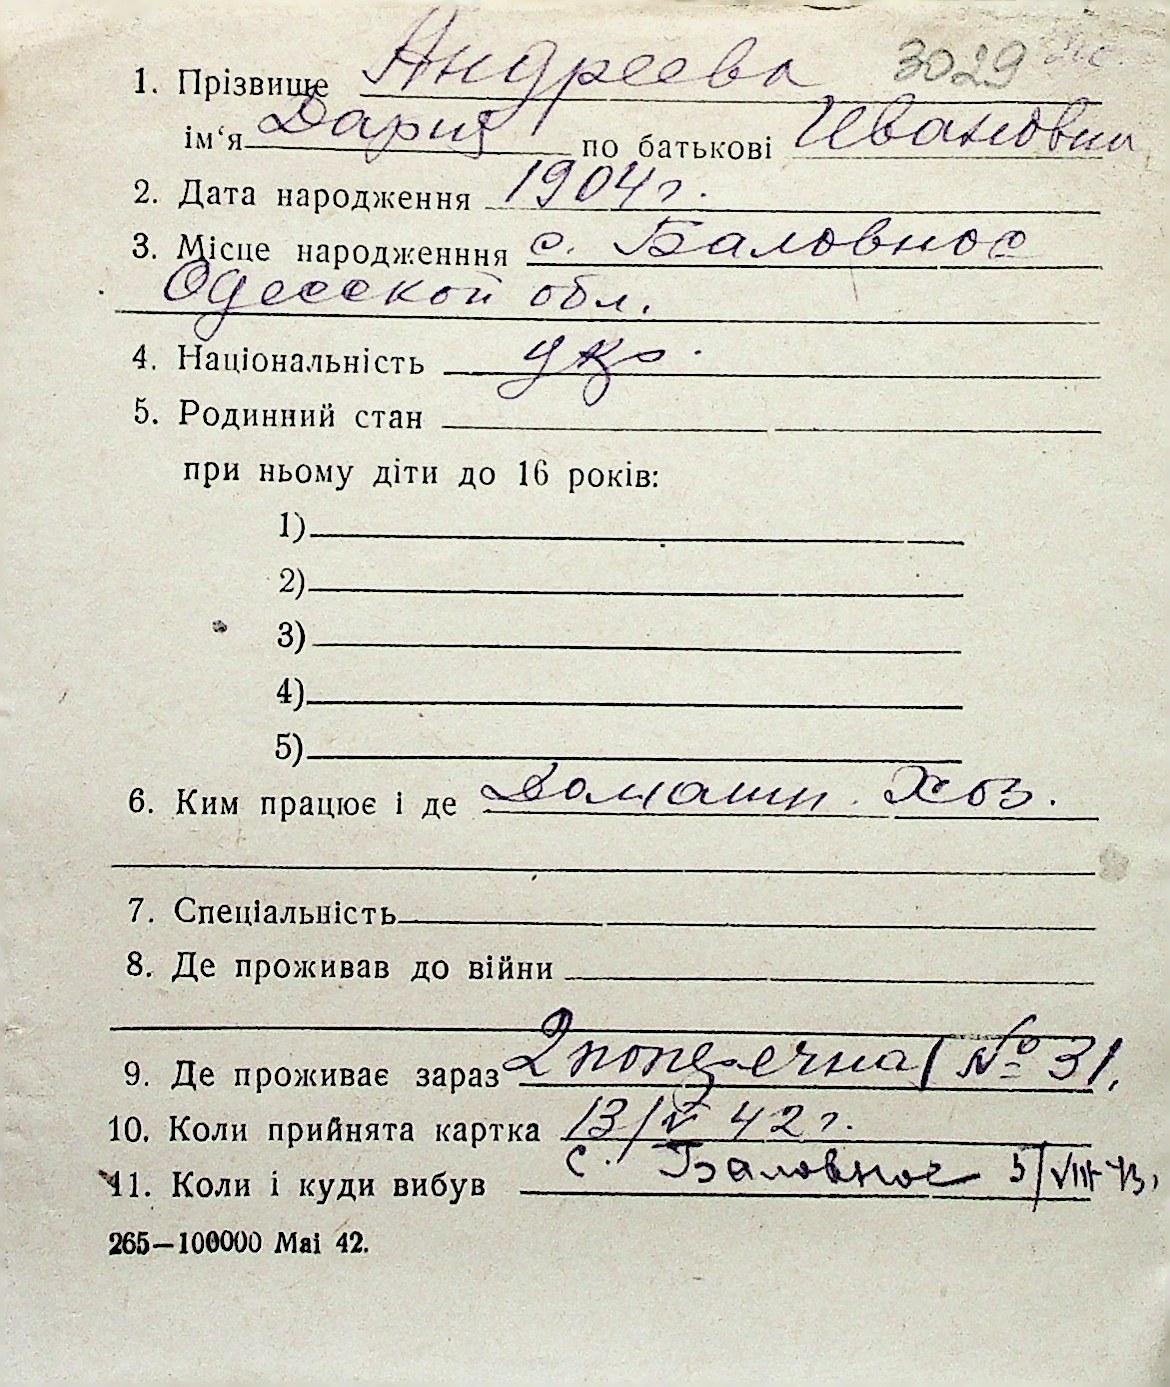 1. Прізвище Андреева 3029
ім‘я Дария по батькові Ивановна
2. Дата народження 1904 г.
3. Місце народженння с. Баловное
Одесской обл.
4. Національність укр.
5. Родинний стан
при ньому діти до 16 років:
1)
2)
3)
4)
5)
6. Ким працює і де Домашн. Хоз.
7. Спеціальність
8. Де проживав до війни
9. Де проживає зараз 2 поперечная № 31.
10. Коли прийнята картка 13/V 42 г.
11. Коли і куди вибув с. Баловное 5/VIII 43.
265—100000 Mai 42.